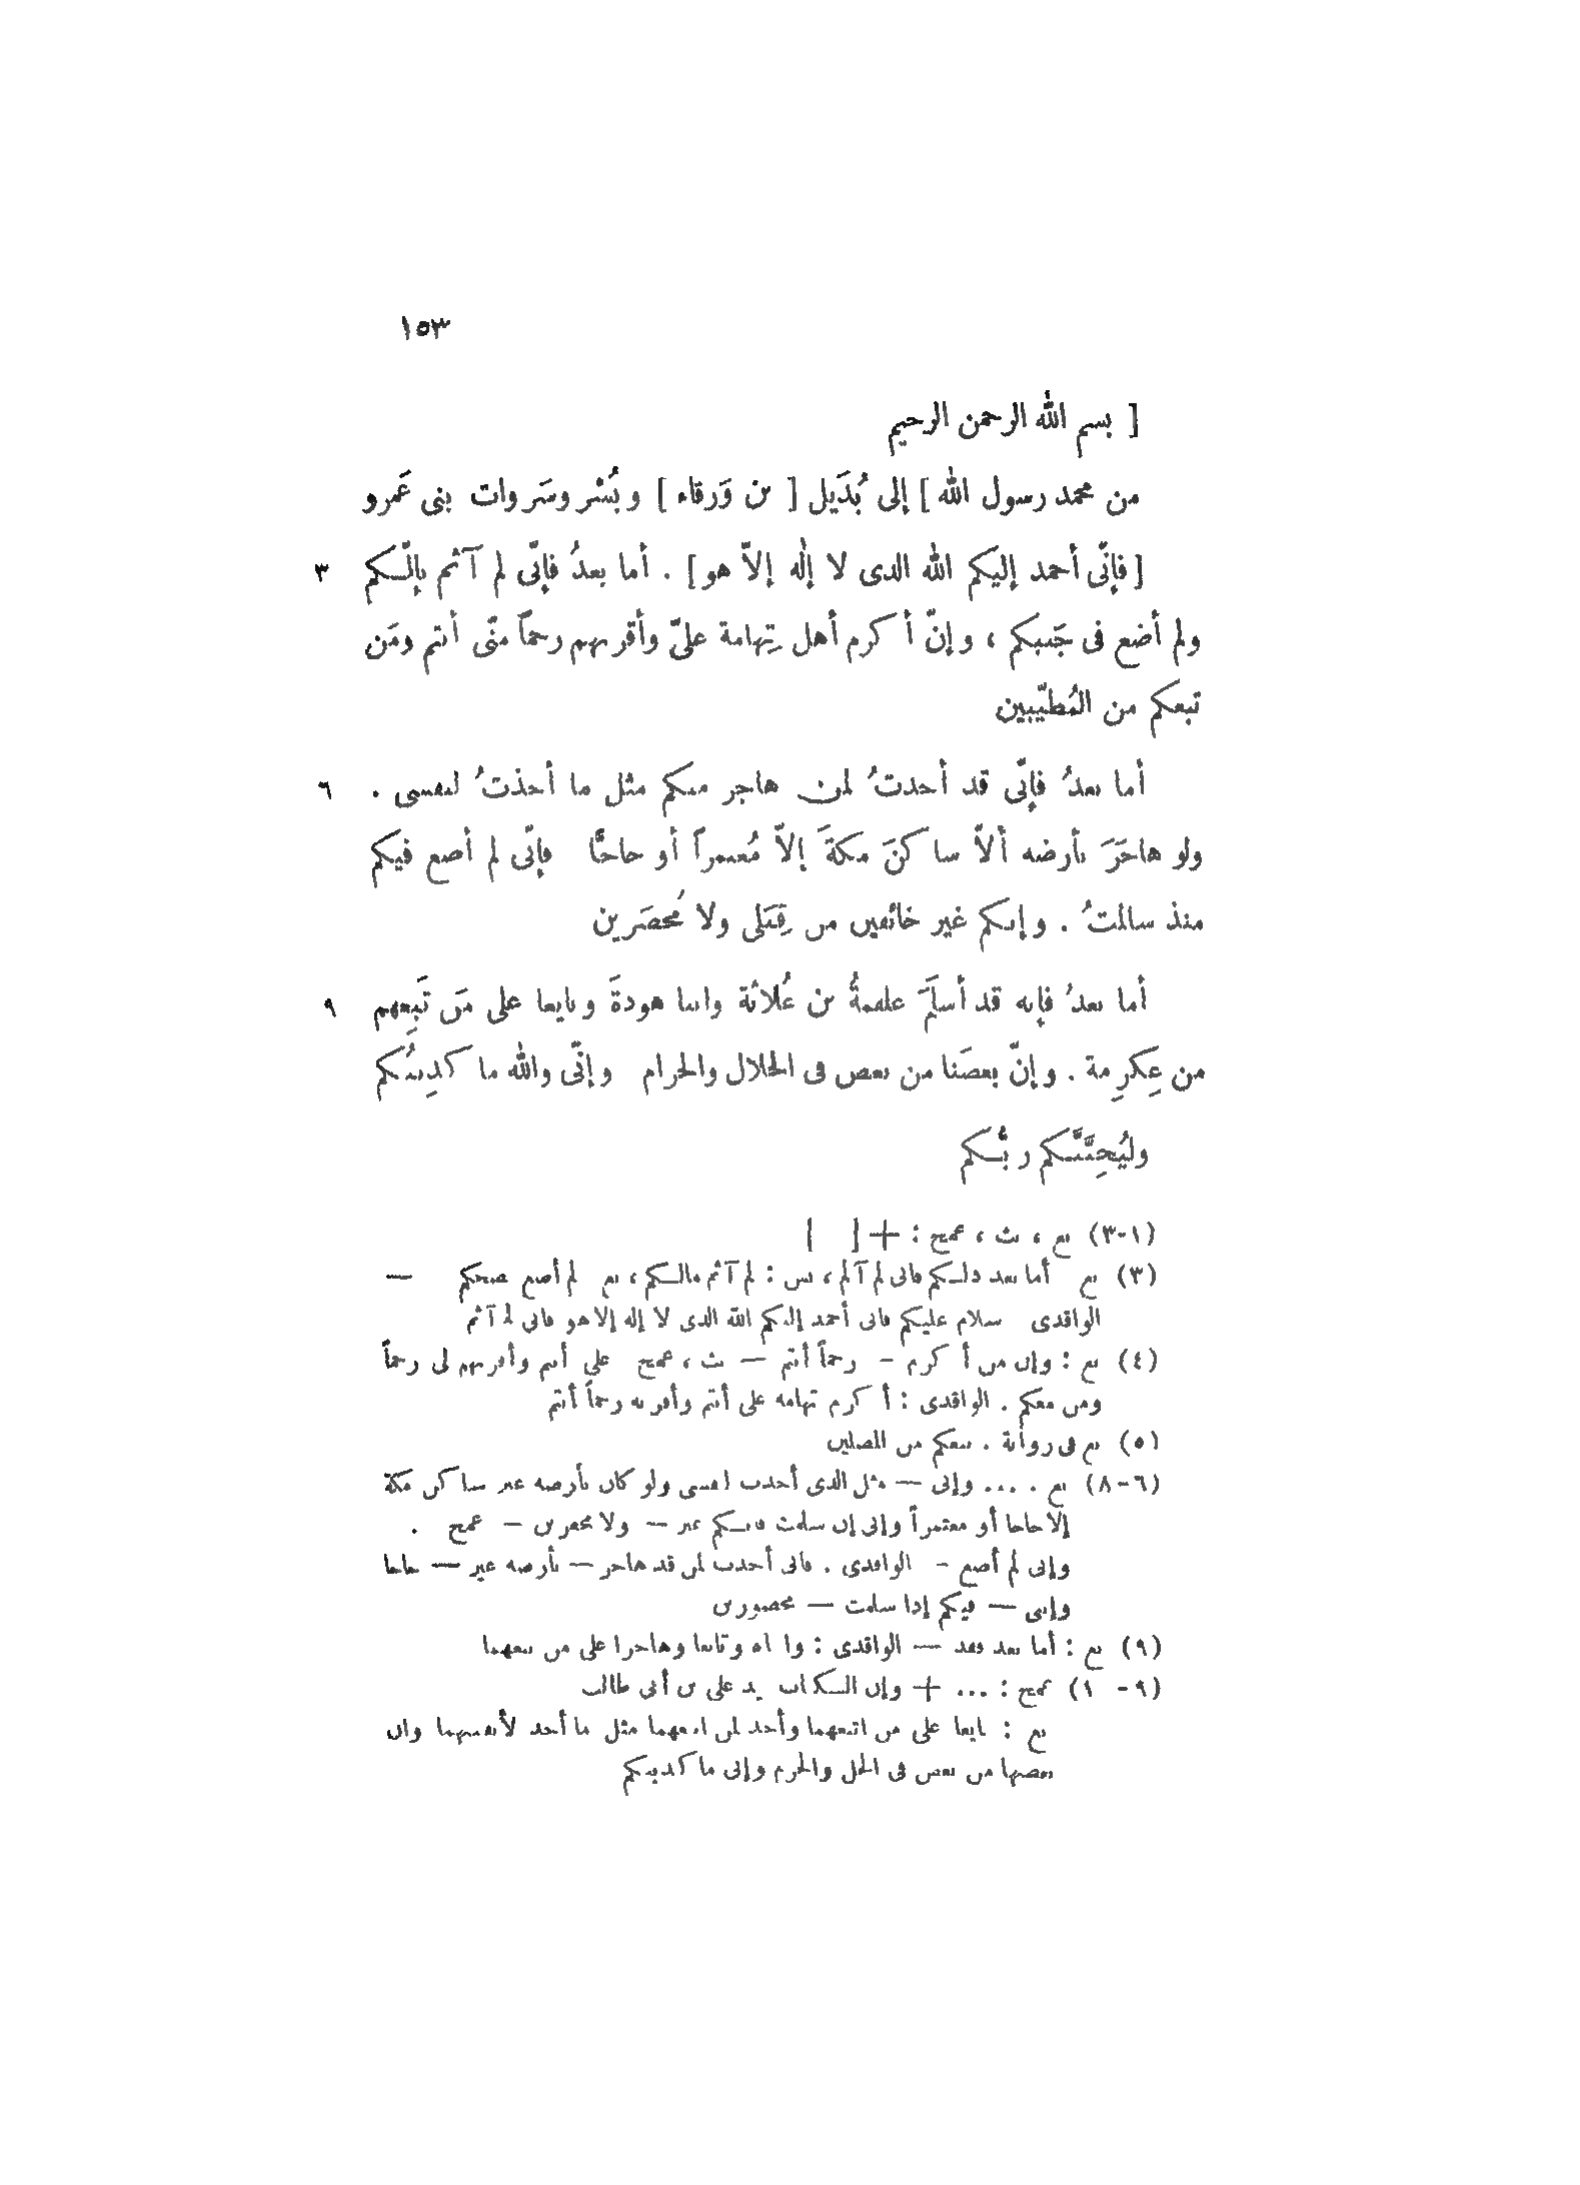 ١٥٣
[ بسم الله الرحمن الرحيم
من محمد رسول الله ] إلى بُدَيل [ بن وَرقاء ] وبُسْر وسَروات بنى عَمرو
[ فإنّى أحمد إليكم الله الذى لا إله إلاّ هو ] . أما بعدُ فإنّى لم آثم بإلّكم ٣
ولم أضع فى جَنبكم ، وإنّ أكرم أهل تِهامة علىّ وأقربهم رحماً منّى أنتم ومَن
تبعكم من المُطيّبين
أما بعدُ فإنّى قد أخذتُ لمن هاجر منكم مثل ما أخذتُ لنفسى . ٦
ولو هاجَرَ بأرضه ألاّ ساكنَ مكةَ إلاّ مُعتمراً أو حاجًّا فإنّى لم أضع فيكم
منذ سالمتُ . وإنكم غير خائفين من قِبَلى ولا مُحصَرين
أما بعدُ فإنه قد أسلَمَ علقمةُ بن عُلاثة وابنا هوذةَ وبايعا على مَن تَبِعهم ٩
من عِكرِمة . وإنّ بعضَنا من بعض فى الحلال والحرام وإنّى والله ما كذِبتُكم
وليُحِبَّنَّكم ربُّكم
(١-٣) بع ، بث ، عمخ : + [ ]
(٣) بع أما بعد ذلكم فانى لم آلم ، بس : لم آثم مالكم ، بع لم أضع نصحكم —
الواقدى سلام عليكم فانى أحمد إليكم الله الذى لا إله إلا هو فانى لم آثم
(٤) بع : وإن من أكرم - رحماً أنتم — بث ، عمخ على أنتم وأقربهم لى رحماً
ومن معكم . الواقدى : أكرم تهامه على أنتم وأقربه رحماً أنتم
(٥) بع فى رواية . تبعكم من المصلين
(٦-٨) بع . ... وإنى — مثل الذى أخذت لنفسى ولو كان بأرضه غير ساكن مكة
إلا حاجا أو معتمراً وإنى إن سلمت فانكم غير — ولا مخفرين — عمخ .
وإنى لم أضع - الواقدى . فانى أخذت لمن قد هاجر — بأرضه غير — حاجا
وإنى — فيكم إذا سلمت — محصورين
(٩) بع : أما بعد فقد — الواقدى : وابناه وتابعا وهاجرا على من تبعهما
(٩- ١) عمخ : ... + وإن الكتاب بيد على بن أبى طالب
بع : بايعا على من اتبعهما وأخذ لمن اتبعهما مثل ما أخذ لأنفسهما وان
بعضها من بعض فى الحل والحرم وإنى ما كذبتكم